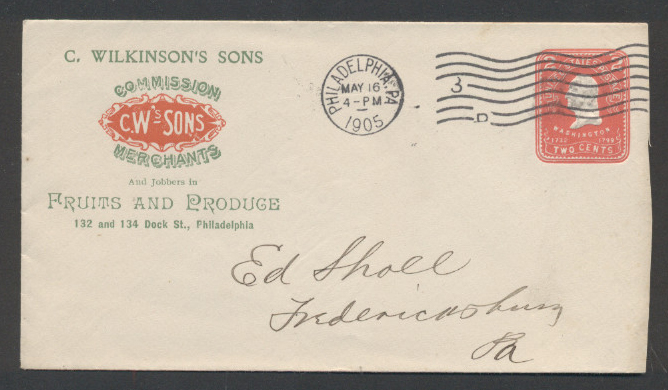 C. WILKINSON'S SONS
COMMISSION
C.W'S SONS
MERCHANTS
And Jobbers in
FRUITS AND PRODUCE
132 and 134 Dock St., Philadelphia
PHILADELPHIA, PA
MAY 16
4-PM
1905
3
D
WASHINGTON
1732 1799
TWO CENTS
Ed Sholl
Fredericksburg
Pa